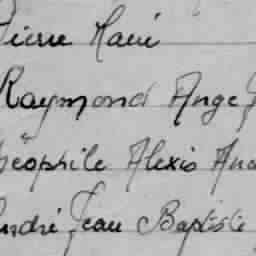 Pierre Marie
Raymond Ange
Théophile Alexis And
André Jean Baptiste